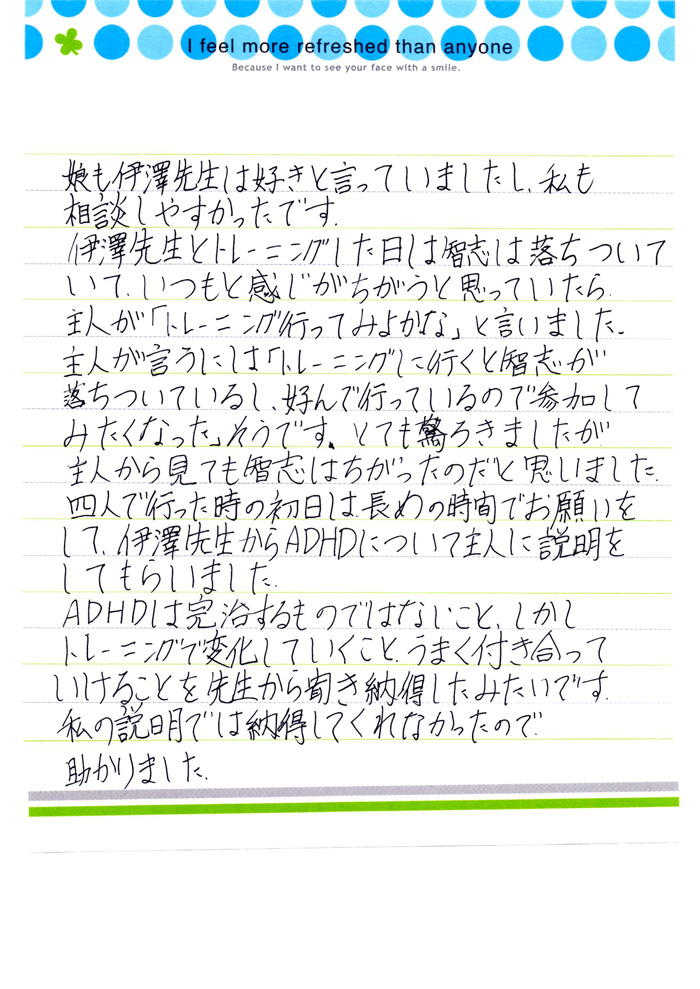 I feel more refreshed than anyone
Because I want to see your face with a smile.
娘も伊澤先生は好きと言っていましたし、私も
相談しやすかったです。
伊澤先生とトレーニングした日は智志は落ちついて
いて、いつもと感じがちがうと思っていたら、
主人が「トレーニング行ってみよかな」と言いました。
主人が言うには「トレーニングに行くと智志が
落ちついているし、好んで行っているので参加して
みたくなった」そうです。とても驚ろきましたが
主人から見ても智志はちがったのだと思いました。
四人で行った時の初日は、長めの時間でお願いを
して、伊澤先生からADHDについて主人に説明を
してもらいました。
ADHDは完治するものではないこと、しかし
トレーニングで変化していくこと、うまく付き合って
いけることを先生から聞き納得したみたいです。
私の説明では納得してくれなかったので
助かりました。